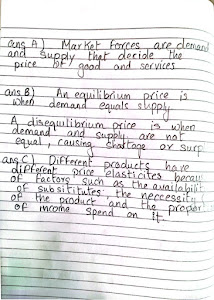 ans A) Market forces are demand
and supply that decide the
price of good and services
ans B) An equilibrium price is
when demand equals supply
A disequilibrium price is when
demand and supply are not
equal, causing shortage or surp
ans C) Different products have
different price elasticites becau
of factors such as the availabilit
of subsititutes the neccessity
of the product and the propor
of income spend on it